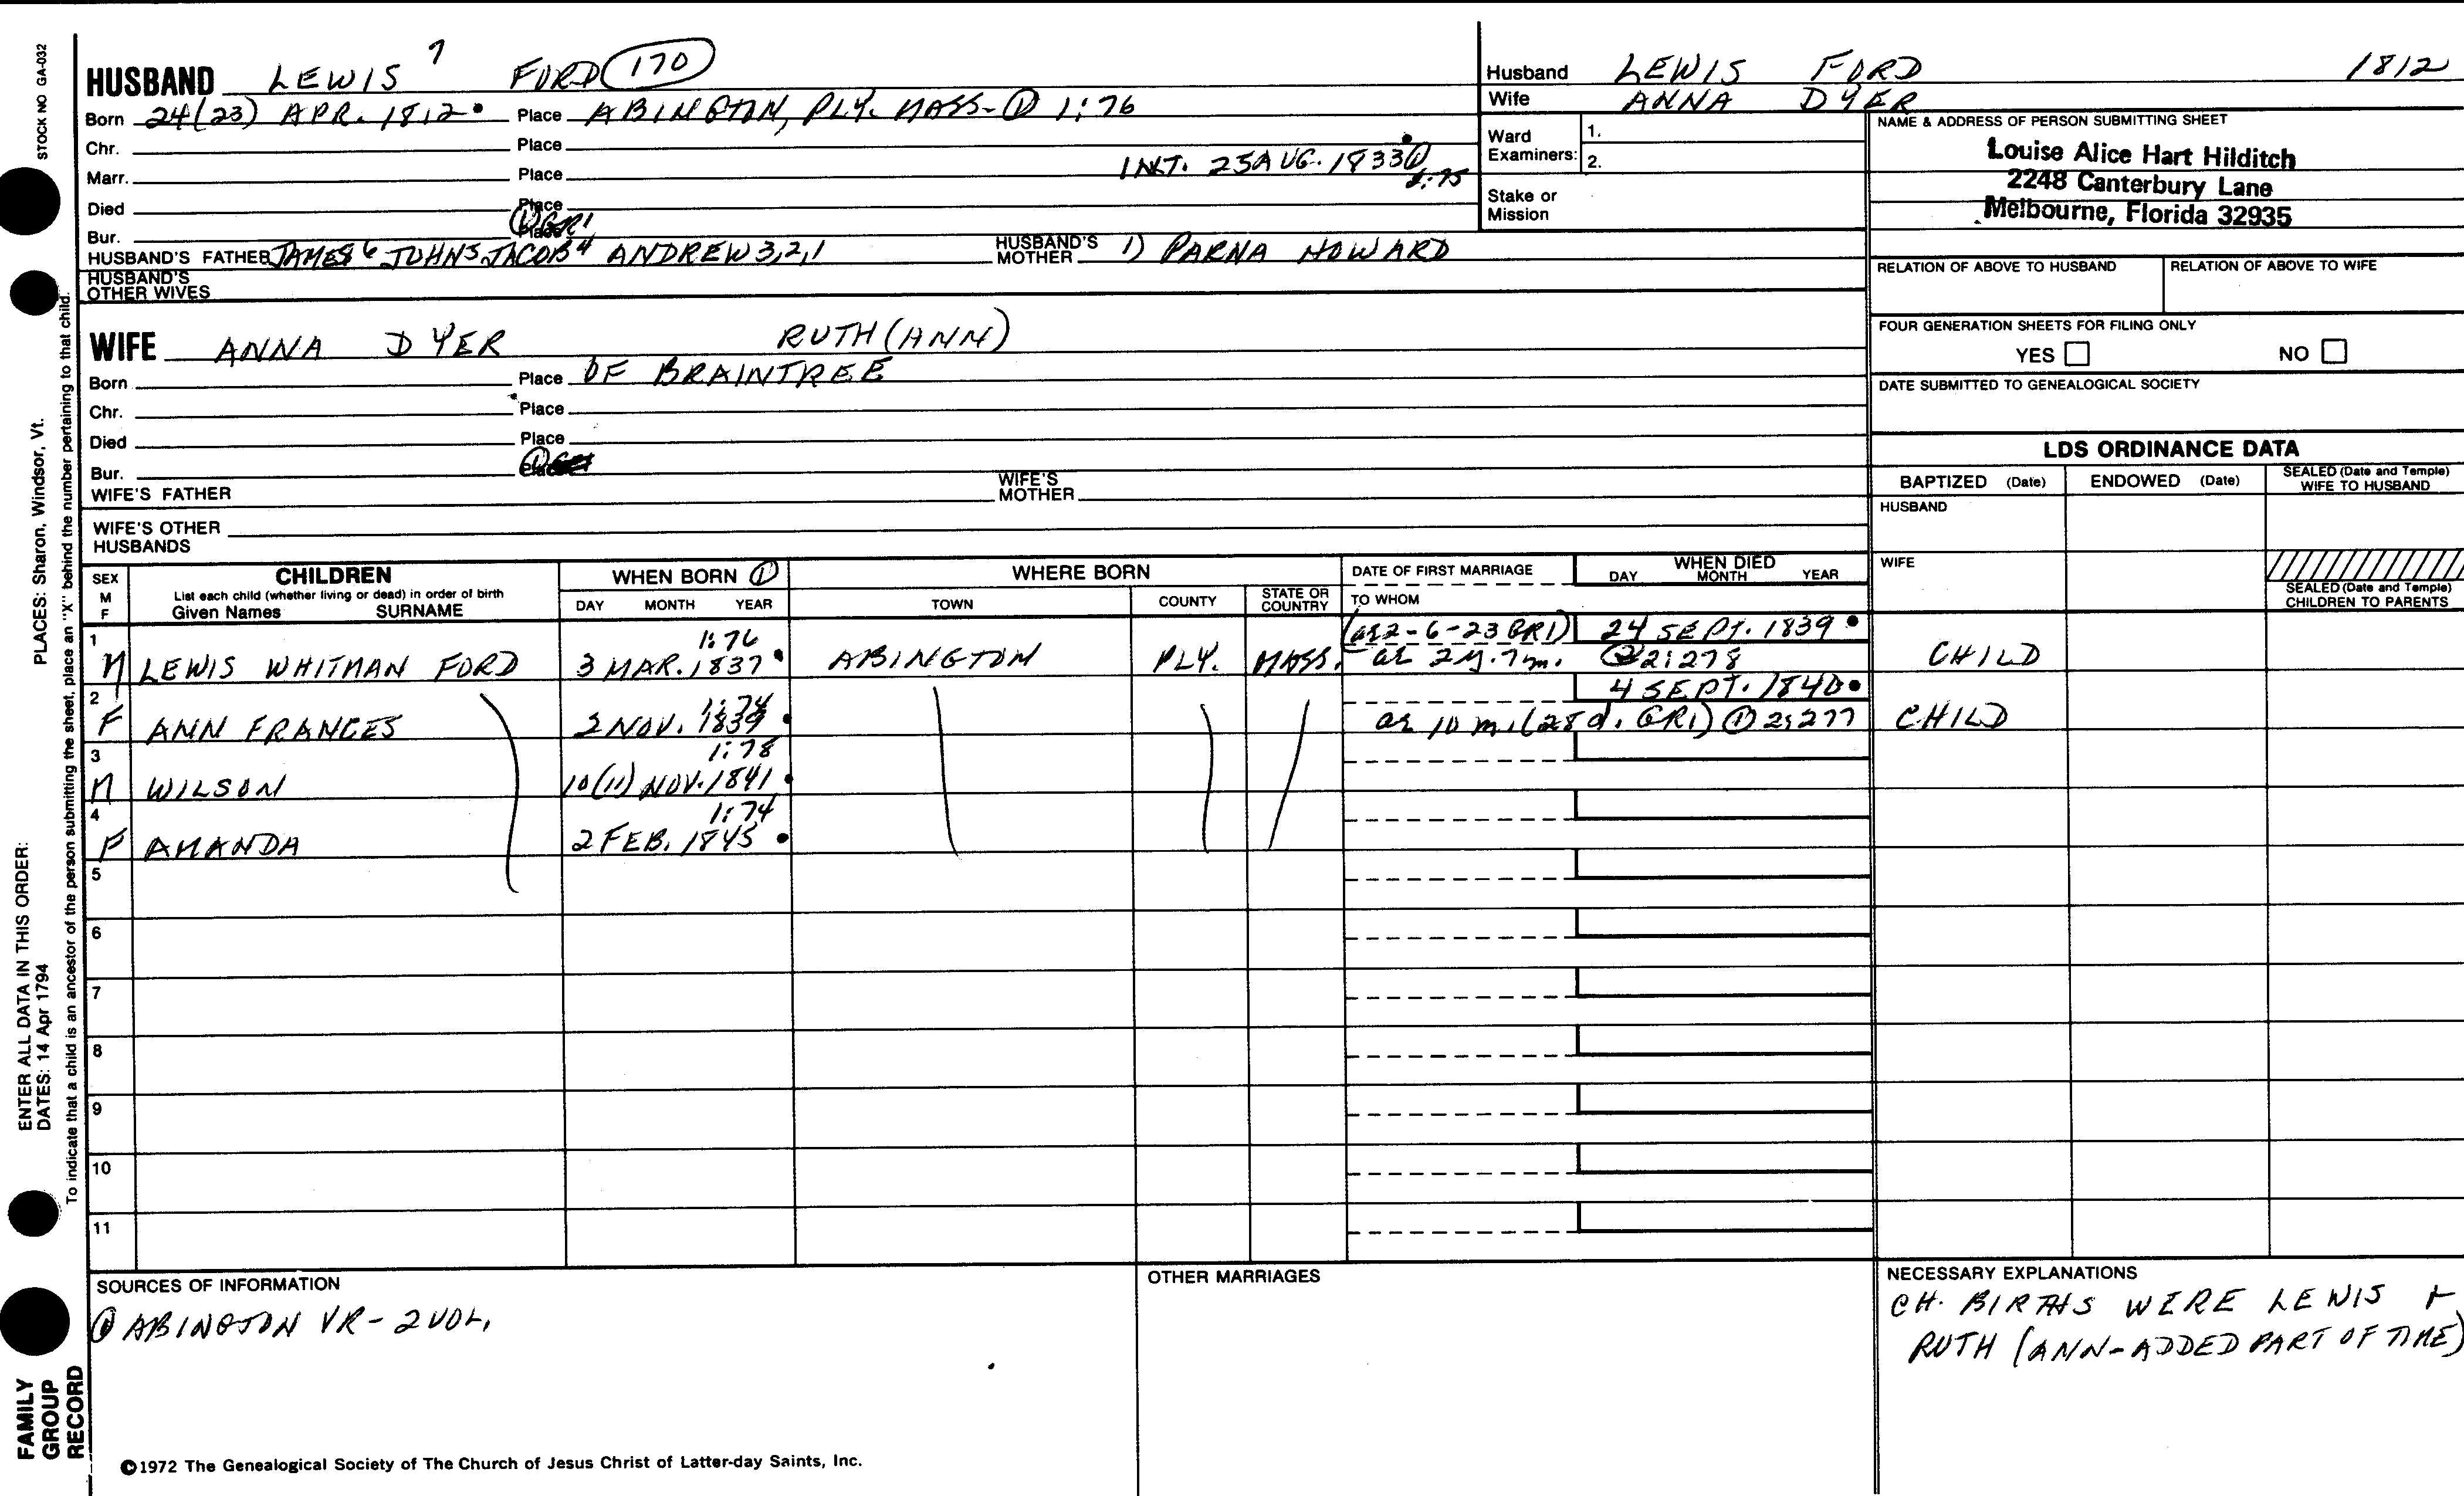 STOCK NO GA-032
HUSBAND LEWIS 7 FORD 170
Born 24(23) APR. 1812 Place ABINGTON, PLY. MASS- ① 1:76
Chr. Place
Marr. Place INT. 25 AUG. 1833 ①
2:75
Died Place
Bur. Place ① GR1
HUSBAND'S FATHER JAMES 6 JOHN 5 JACOB 4 ANDREW 3,2,1 HUSBAND'S MOTHER 1) PARNA HOWARD
HUSBAND'S OTHER WIVES
WIFE ANNA DYER RUTH (ANN)
Born Place OF BRAINTREE
Chr. Place
Died Place
Bur. Place ①
WIFE'S FATHER WIFE'S MOTHER
WIFE'S OTHER HUSBANDS
Husband LEWIS FORD 1812
Wife ANNA DYER
Ward Examiners: 1.
2.
Stake or Mission
NAME & ADDRESS OF PERSON SUBMITTING SHEET
Louise Alice Hart Hilditch
2248 Canterbury Lane
Melbourne, Florida 32935
RELATION OF ABOVE TO HUSBAND RELATION OF ABOVE TO WIFE
FOUR GENERATION SHEETS FOR FILING ONLY
YES NO
DATE SUBMITTED TO GENEALOGICAL SOCIETY
LDS ORDINANCE DATA
BAPTIZED (Date) ENDOWED (Date) SEALED (Date and Temple) WIFE TO HUSBAND
HUSBAND
WIFE
SEALED (Date and Temple) CHILDREN TO PARENTS
SEX M F CHILDREN WHEN BORN ① WHERE BORN DATE OF FIRST MARRIAGE WHEN DIED
List each child (whether living or dead) in order of birth
Given Names SURNAME DAY MONTH YEAR TOWN COUNTY STATE OR COUNTRY TO WHOM DAY MONTH YEAR
1 1:76 (ae 2-6-23 GR1) 24 SEPT. 1839
M LEWIS WHITMAN FORD 3 MAR. 1837 ABINGTON PLY. MASS. ae 2 y. 7 m. ② 2:278 CHILD
2 1:74 4 SEPT. 1840
F ANN FRANCES 2 NOV. 1839 ae 10 m. (28 d. GR1) ① 2:277 CHILD
3 1:78
M WILSON 10(11) NOV. 1841
4 1:74
F AMANDA 2 FEB. 1845
5
6
7
8
9
10
11
SOURCES OF INFORMATION
① ABINGTON VR - 2 VOL.
OTHER MARRIAGES
NECESSARY EXPLANATIONS
CH. BIRTHS WERE LEWIS +
RUTH (ANN-ADDED PART OF TIME)
©1972 The Genealogical Society of The Church of Jesus Christ of Latter-day Saints, Inc.
PLACES: Sharon, Windsor, Vt.
ENTER ALL DATA IN THIS ORDER:
DATES: 14 Apr 1794
To indicate that a child is an ancestor of the person submitting the sheet, place an "X" behind the number pertaining to that child.
FAMILY
GROUP
RECORD